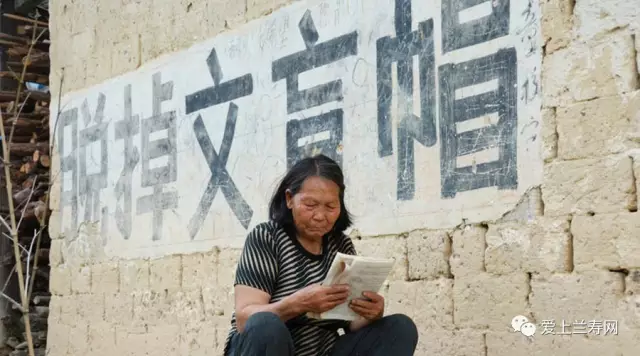 脱掉文盲帽
爱上兰寿网